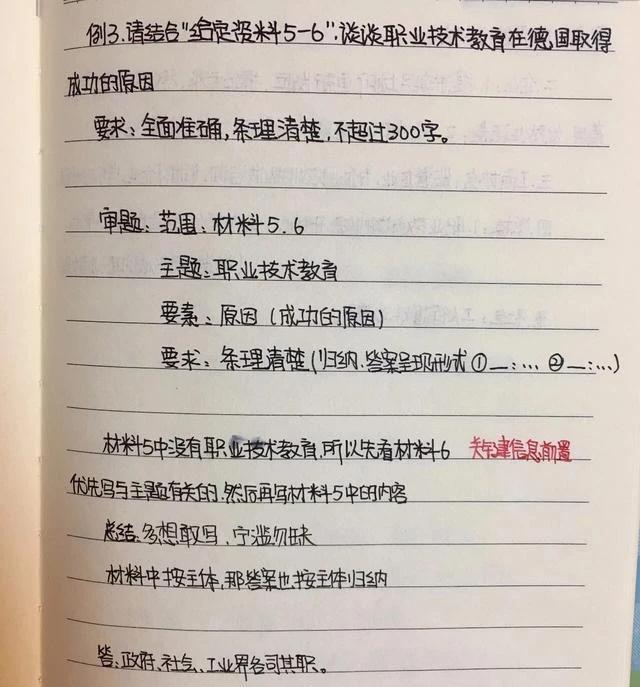 例3.请结合"给定资料5-6",谈谈职业技术教育在德国取得
成功的原因
要求:全面准确,条理清楚,不超过300字。
审题:范围:材料5.6
主题:职业技术教育
要素:原因(成功的原因)
要求:条理清楚(归纳.答案呈现形式①—:… ②—:…)
材料5中没有职业技术教育,所以先看材料6 关键信息前置
优先写与主题有关的.然后再写材料5中的内容
总结:多想敢写、宁滥勿缺
材料中按主体,那答案也按主体归纳
答:政府、社会、工业界各司其职。